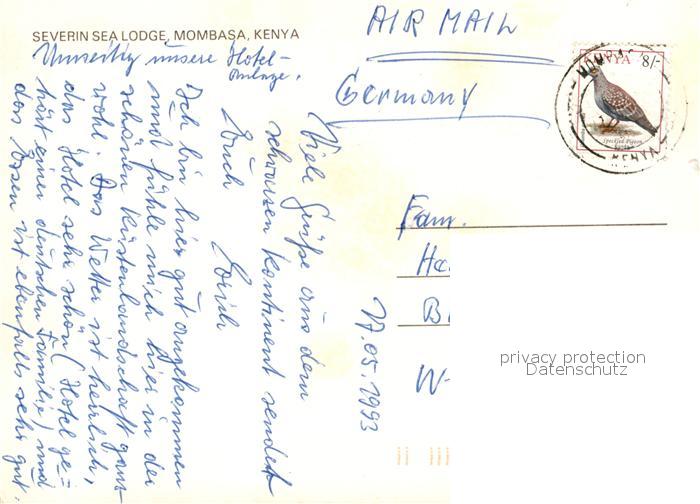 SEVERIN SEA LODGE, MOMBASA, KENYA
Umseitig unsere Hotel-
anlage.
AIR MAIL
Germany
KENYA 8/-
Speckled Pigeon
KENYA
17.05.1993
Viele Grüße aus dem
schwarzen Kontinent sendet
Euch Erich
Ich bin hier gut angekommen
und fühle mich hier in der
schönen Küstenlandschaft ganz
wohl. Das Wetter ist herrlich,
das Hotel sehr schön (Hotel ge-
hört einer deutschen Familie) und
das Essen ist ebenfalls sehr gut.
Fam.
He
B
W-
privacy protection
Datenschutz